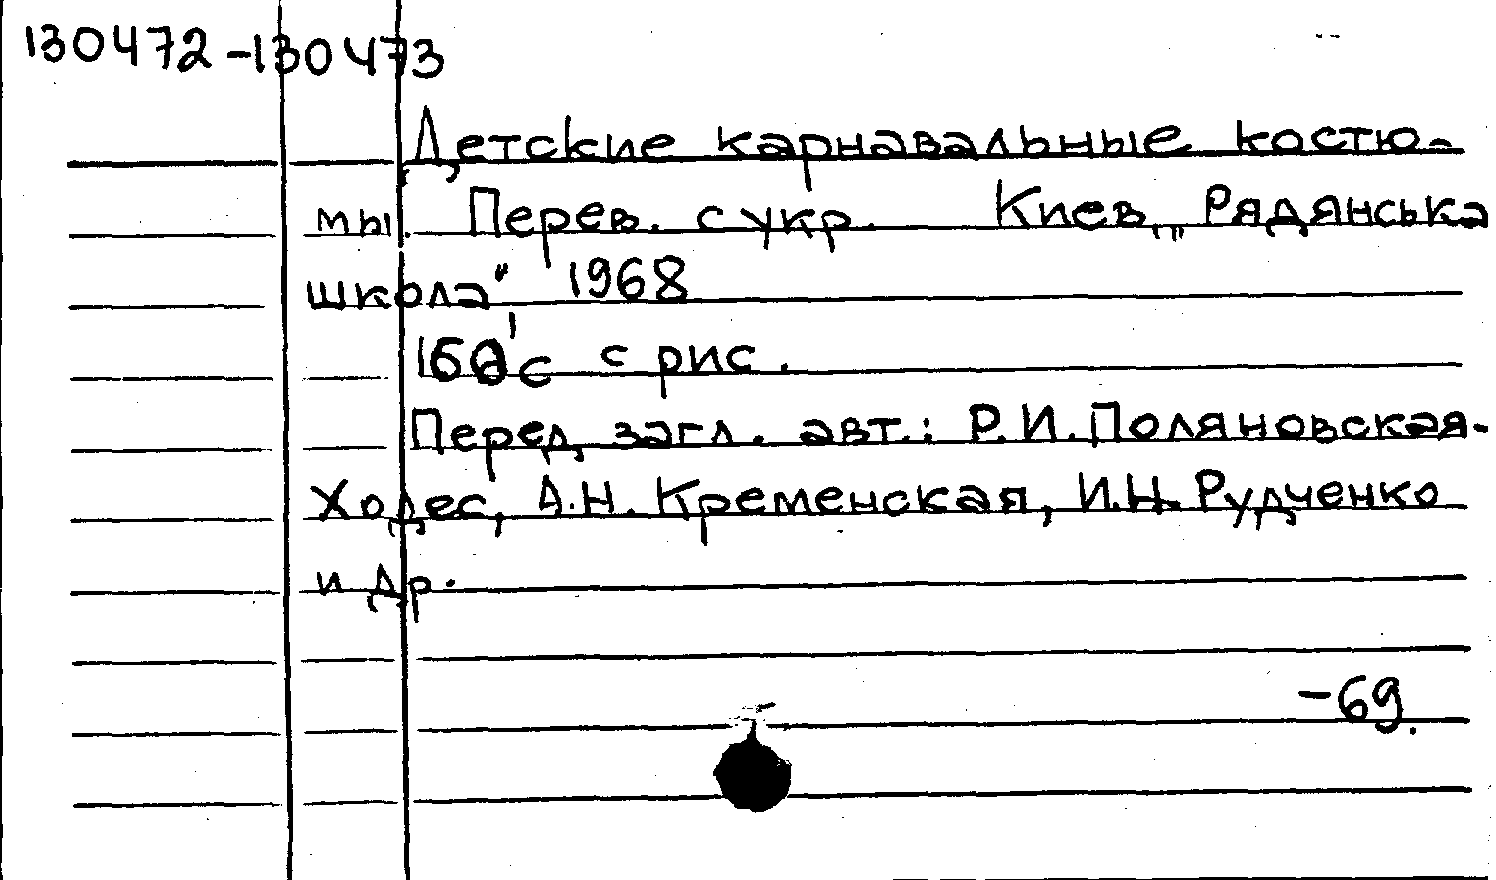 130472-130473
Детские карнавальные костю-
мы. Перев. с укр. Киев, „Рядянська
школа" 1968
160 с с рис.
Перед загл. авт.: Р.И.Поляновская-
Ходес, А.Н. Кременская, И.Н. Рудченко
и др.
-69.